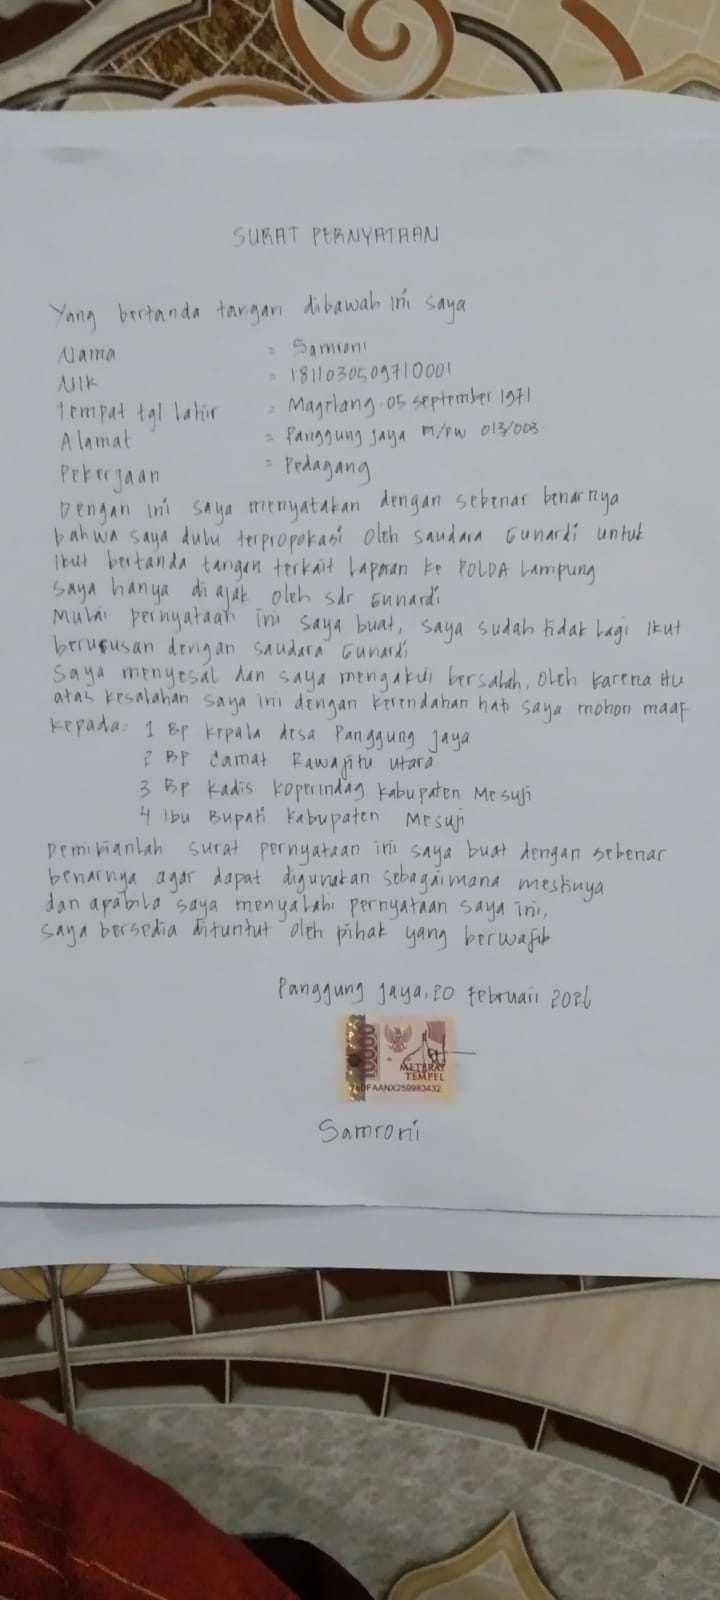 SURAT PERNYATAAN
Yang bertanda tangan dibawah ini saya
Nama = Samroni
NIK = 1811030509710001
Tempat tgl Lahir = Magelang. 05 september 1971
Alamat = Panggung Jaya RT/RW 013/003
Pekerjaan = Pedagang
Dengan ini saya menyatakan dengan sebenar benarnya
bahwa saya dulu terpropokasi oleh saudara Gunardi untuk
Ikut bertanda tangan terkait Laporan ke POLDA Lampung
saya hanya di ajak oleh sdr Gunardi
Mulai pernyataan ini saya buat, saya sudah tidak lagi Ikut
berurusan dengan saudara Gunardi
Saya menyesal dan saya mengakui bersalah, oleh karena itu
atas kesalahan saya ini dengan kerendahan hati saya mohon maaf
kepada: 1 BP kepala desa Panggung Jaya
2 BP Camat Rawajitu utara
3 BP Kadis Koperindag Kabupaten Mesuji
4 Ibu Bupati Kabupaten Mesuji
Demikianlah surat pernyataan ini saya buat dengan sebenar
benarnya agar dapat digunakan sebagaimana mestinya
dan apabila saya menyalahi pernyataan saya ini,
saya bersedia dituntut oleh pihak yang berwajib
Panggung Jaya, 20 Februari 2026
10000
METERAI
TEMPEL
FAANX259983432
Samroni